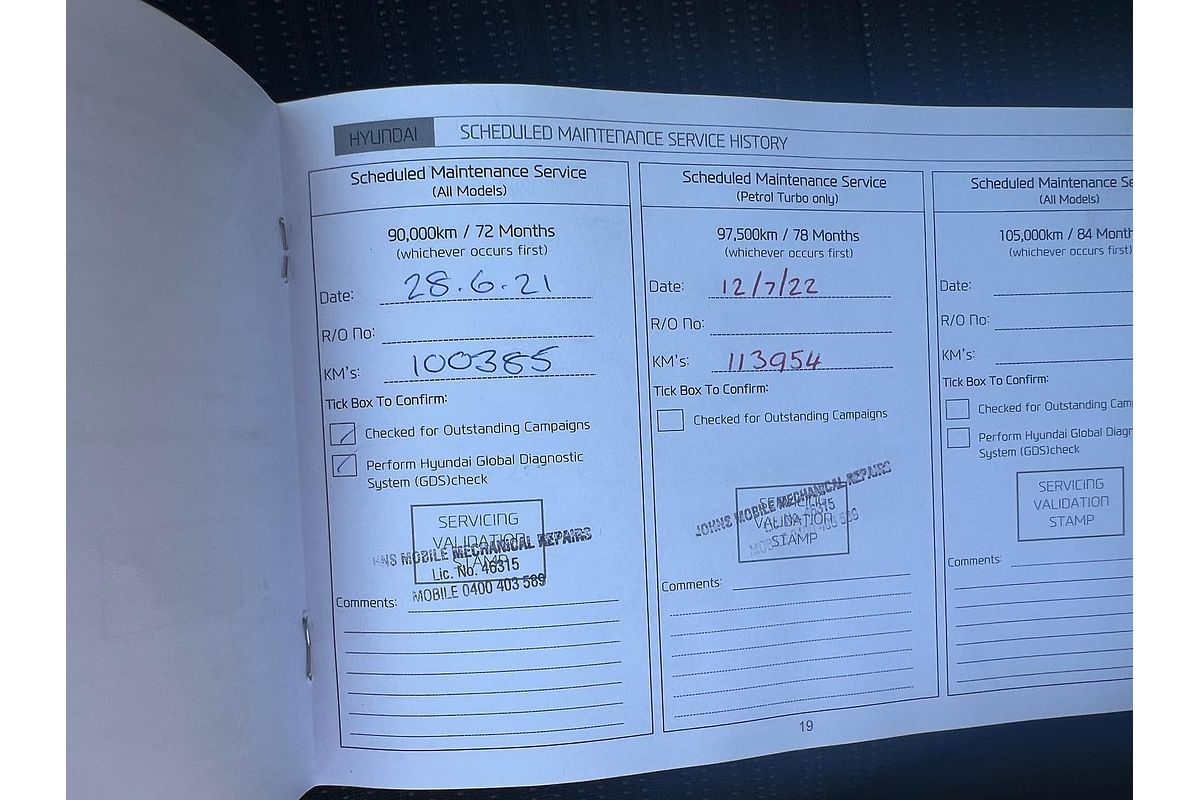 HYUNDAI SCHEDULED MAINTENANCE SERVICE HISTORY
Scheduled Maintenance Service
(All Models)
90,000km / 72 Months
(whichever occurs first)
Date: 28.6.21
R/O No:
KM's: 100385
Tick Box To Confirm:
Checked for Outstanding Campaigns
Perform Hyundai Global Diagnostic
System (GDS)check
SERVICING
VALIDATION
STAMP
MOBILE MECHANICAL REPAIRS
Lic. No. 46315
MOBILE 0400 403 589
Comments:
Scheduled Maintenance Service
(Petrol Turbo only)
97,500km / 78 Months
(whichever occurs first)
Date: 12/7/22
R/O No:
KM's: 113954
Tick Box To Confirm:
Checked for Outstanding Campaigns
SERVICING
VALIDATION
STAMP
JOHNS MOBILE MECHANICAL REPAIRS
Comments:
Scheduled Maintenance Se
(All Models)
105,000km / 84 Month
(whichever occurs first)
Date:
R/O No:
KM's:
Tick Box To Confirm:
Checked for Outstanding Cam
Perform Hyundai Global Diagn
System (GDS)check
SERVICING
VALIDATION
STAMP
Comments:
19